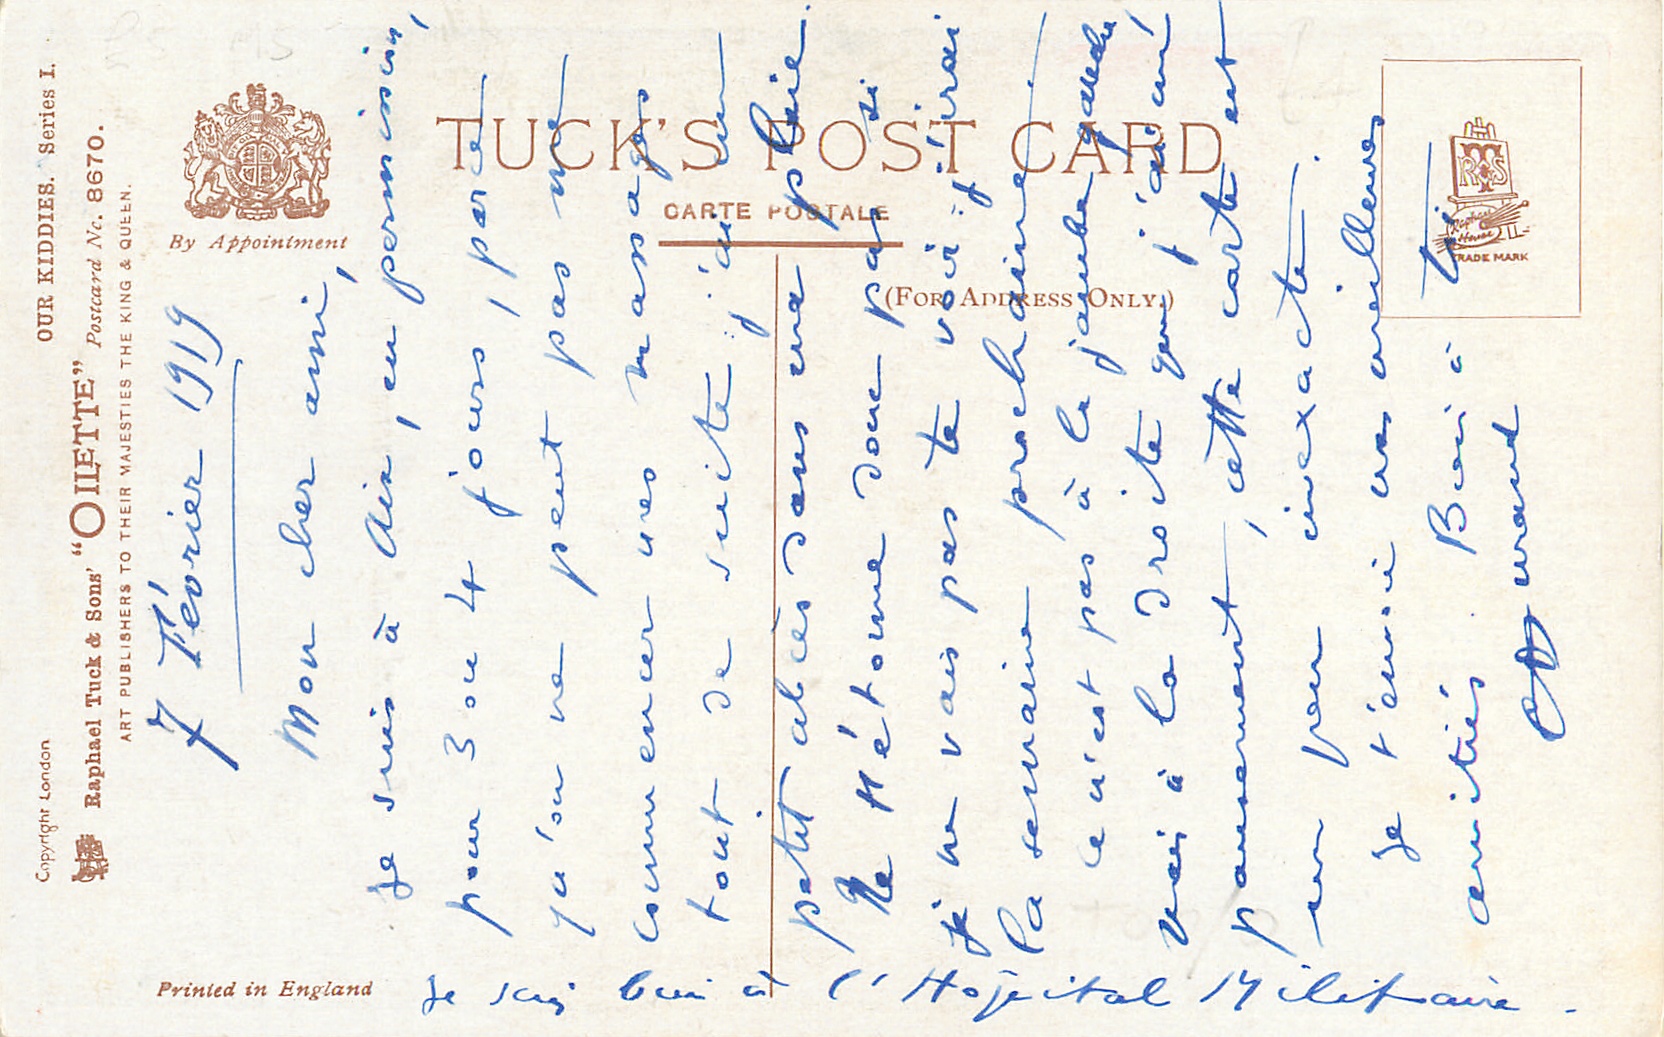 Copyright London
OUR KIDDIES. Series I.
Raphael Tuck & Sons' "OILETTE" Postcard No. 8670.
ART PUBLISHERS TO THEIR MAJESTIES THE KING & QUEEN.
By Appointment
TUCK'S POST CARD
CARTE POSTALE
(FOR ADDRESS ONLY.)
TRS
Raphael House
TRADE MARK
7 Février 1919
Mon cher ami,
Je suis à Aix, en permission,
pour 3 ou 4 jours, parce
qu'on ne peut pas me
commencer mes massages
tout de suite : j'ai un
petit abcès sous ma plaie.
Ne t'étonne donc pas si
je ne vais pas te voir : j'irai
la semaine prochaine.
ce n'est pas à la jambe gauche
mais à la droite que j'ai un
pansement, cette carte est
un peu inexacte.
Je t'envoie mes meilleures
amitiés. Bien à toi
Printed in England
Je suis bien à l'Hopital Militaire.